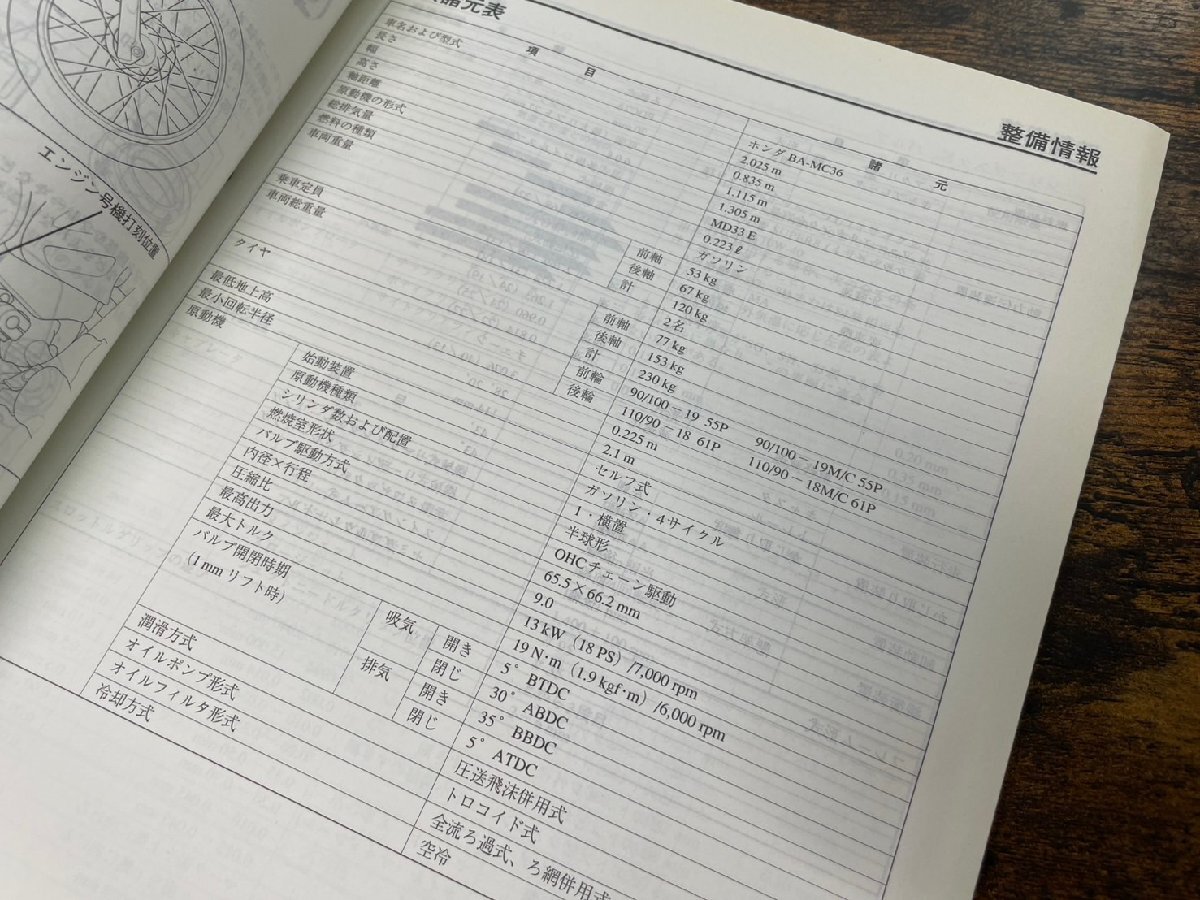 整備情報
諸元表
項 目 諸 元
車名および型式 ホンダ BA-MC36
長さ 2.025 m
幅 0.835 m
高さ 1.115 m
軸距離 1.305 m
原動機の形式 MD33 E
総排気量 0.223 ℓ
燃料の種類 ガソリン
車両重量 前軸 53 kg
後軸 67 kg
計 120 kg
乗車定員 2名
車両総重量 前軸 77 kg
後軸 153 kg
計 230 kg
タイヤ 前輪 90/100－19 55P 90/100－19M/C 55P
後輪 110/90－18 61P 110/90－18M/C 61P
最低地上高 0.225 m
最小回転半径 2.1 m
原動機 始動装置 セルフ式
原動機種類 ガソリン・4サイクル
シリンダ数および配置 1・横置
燃焼室形状 半球形
バルブ駆動方式 OHCチェーン駆動
内径×行程 65.5×66.2 mm
圧縮比 9.0
最高出力 13 kW (18 PS) /7,000 rpm
最大トルク 19 N･m (1.9 kgf･m) /6,000 rpm
バルブ開閉時期 吸気 開き 5° BTDC
(1 mm リフト時) 閉じ 30° ABDC
排気 開き 35° BBDC
閉じ 5° ATDC
潤滑方式 圧送飛沫併用式
オイルポンプ形式 トロコイド式
オイルフィルタ形式 全流ろ過式、ろ網併用式
冷却方式 空冷
エンジン号機打刻位置